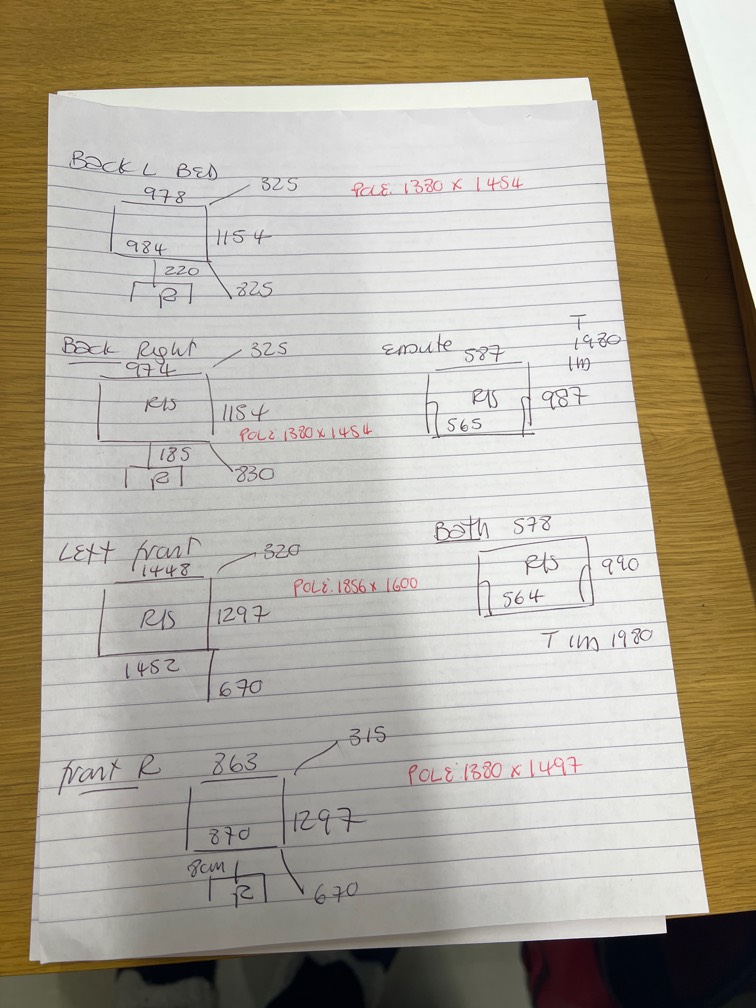 Back L BED
978
325
POLE. 1380 x 1454
984
1154
220
R
825
Back Right
974
325
R/S
1154
POLE 1380 x 1454
185
R
830
Ensuite
587
T
1980
1m
R/S
987
565
Left front
1448
320
POLE: 1856 x 1600
R/S
1297
1452
670
Both 578
R/S
990
564
T 1m 1980
front R
863
315
POLE 1380 x 1497
870
1297
8cm
R
670